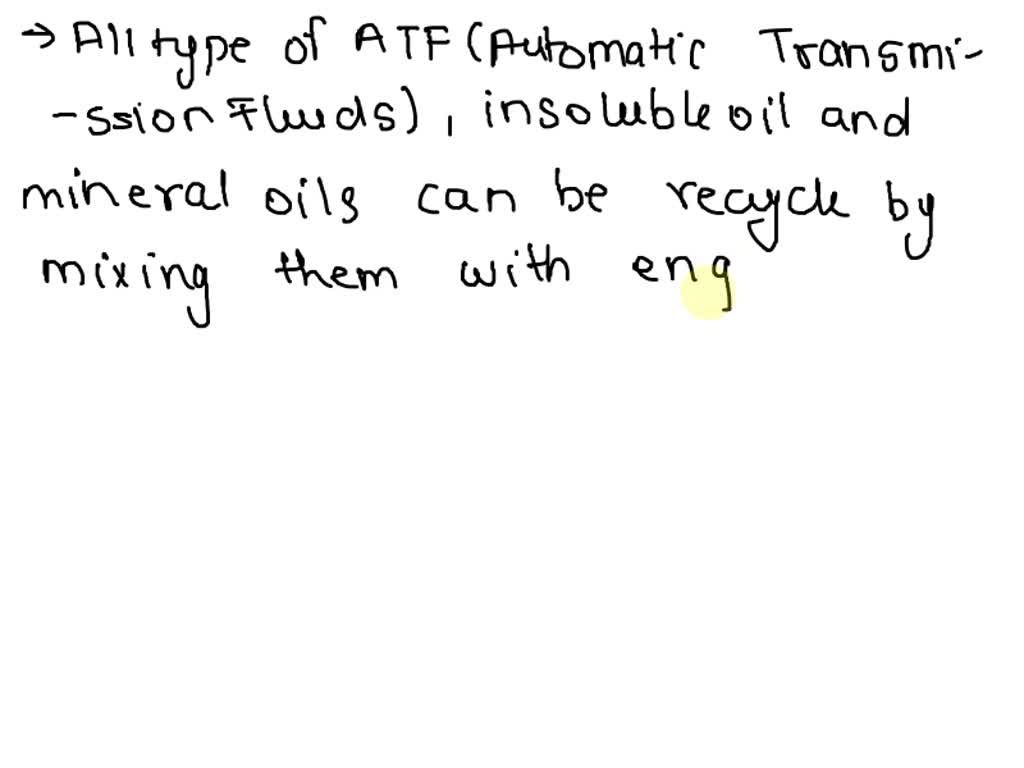 → All type of ATF (Automatic Transmi-
-ssion Fluids), insoluble oil and
mineral oils can be recycle by
mixing them with eng